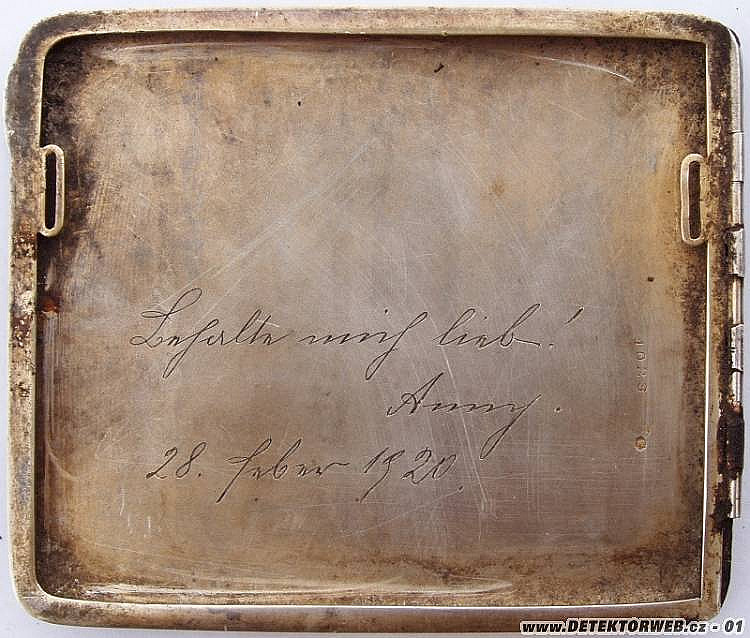 Behalte mich lieb!
Anny.
28. feber 1920.
www.DETEKTORWEB.cz - 01